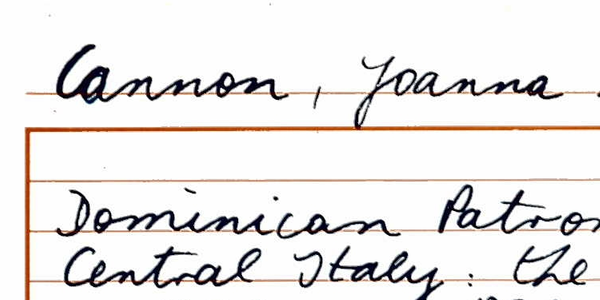 Cannon, Joanna.
Dominican Patro
Central Italy: the